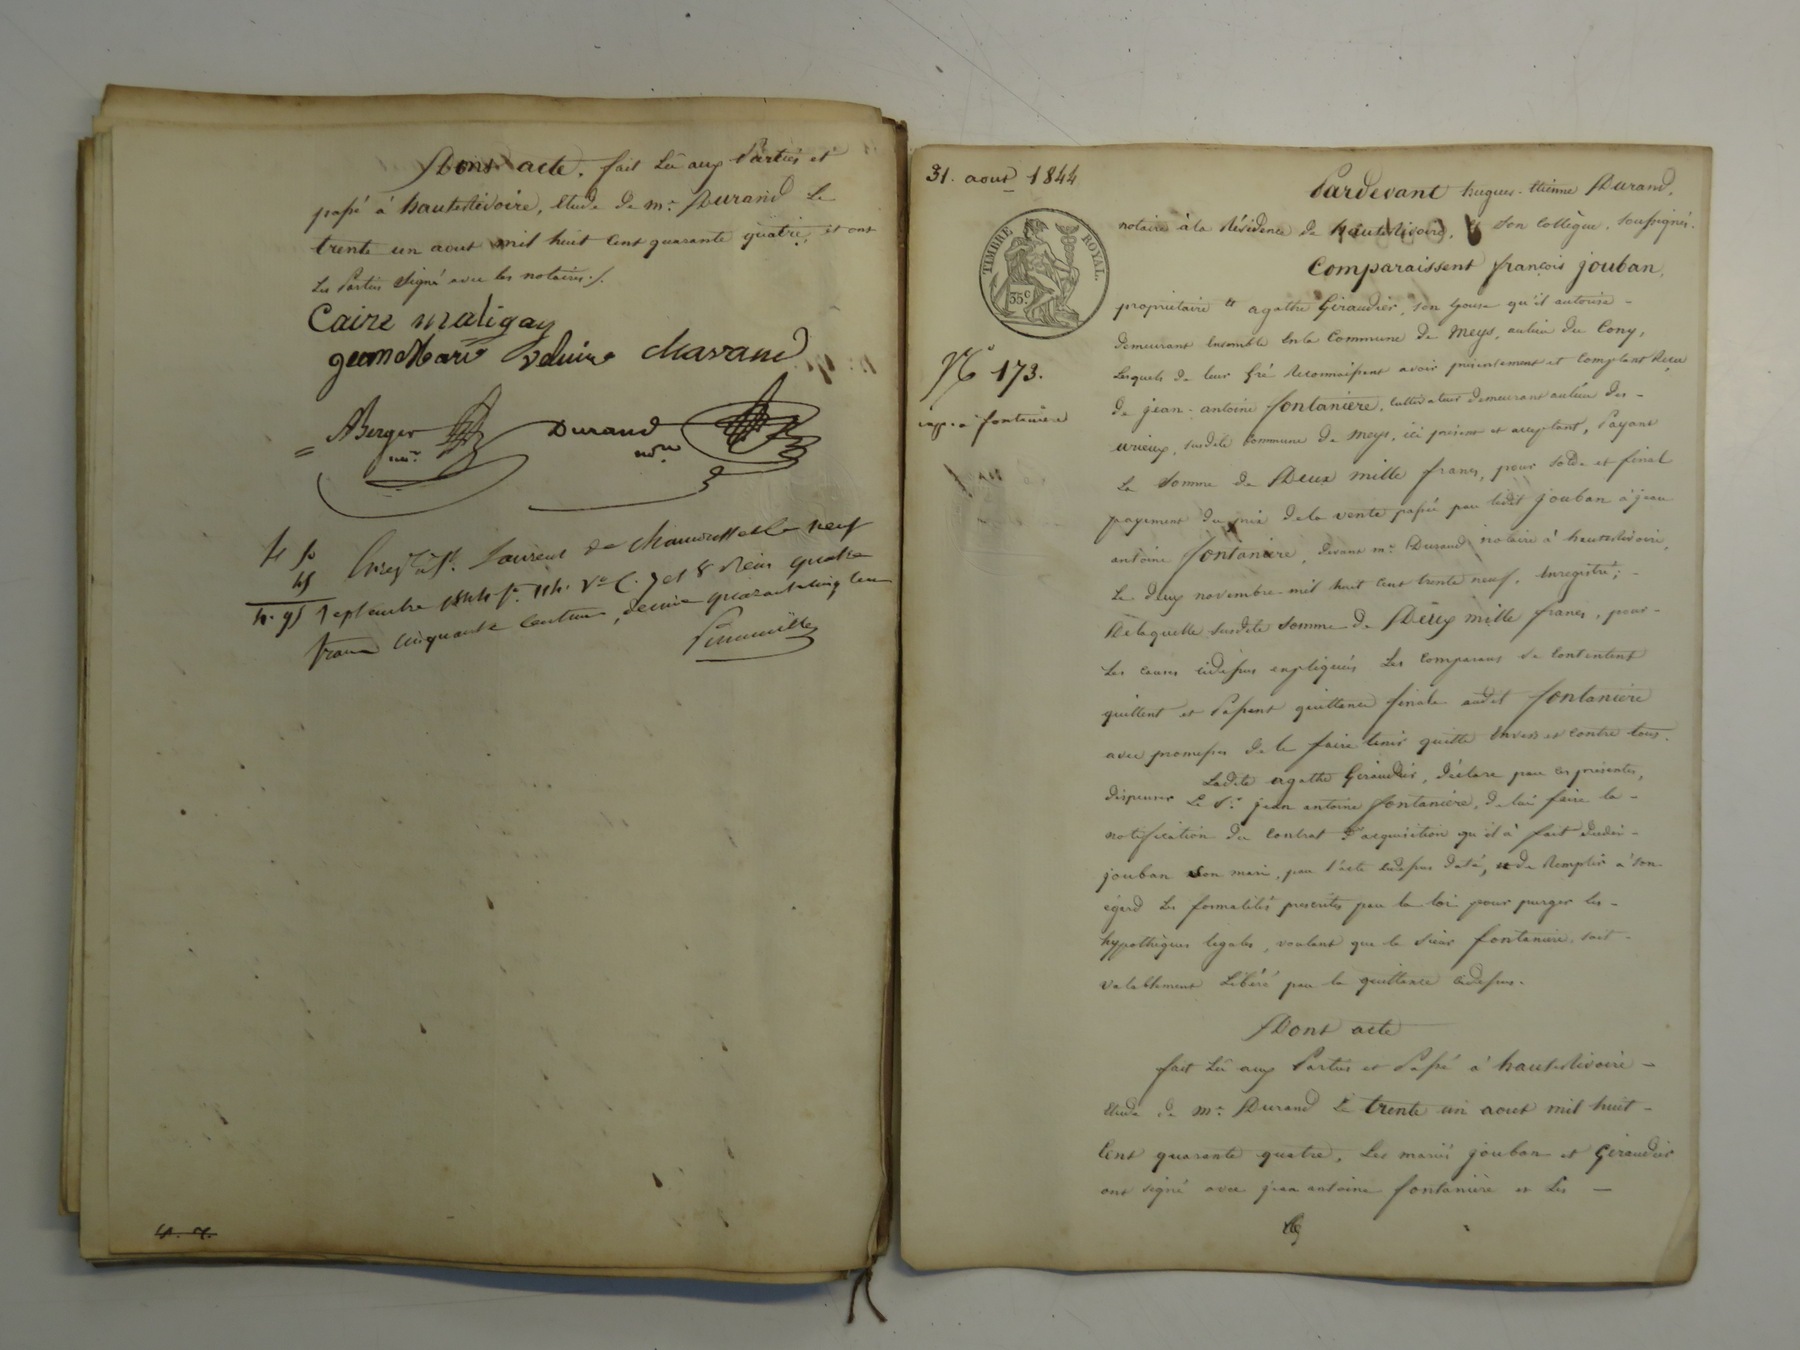 Dont acte, fait Lû aux Parties et
passé à hauterivoire, Etude de Me. Durand Le
trente un aout mil huit Cent quarante quatre, et ont
Les Parties signé avec les notaires./.
Caire maligay
jeanMarie Chavand
ABerger
nre.
Durand
nore
4 50
45
4.95
Enregé à St. Laurent de chamousset le neuf
Septembre 1844 fo. 114. Vo C. 7 et 8 Reçu quatre
francs cinquante centimes, decime quarante cinq cent
31. aout 1844
TIMBRE ROYAL.
35c
No 173.
exp. à fontaniere
Pardevant hugues-Etienne Durand,
notaire à la Résidence de hauterivoire, & Son Collègue, Soussignés.
Comparaissent françois jouban,
propriétaire et agathe Giraudier, son Epouse qu'il autorise -
demeurant Ensemble En la Commune de Meys, au lieu du Cony,
Lesquels de leur Gré Reconnaissent avoir présentement et Comptant Reçu
de jean-antoine fontaniere, Cultivateur demeurant au lieu des -
urieux, susdite Commune de Meys, ici présent et acceptant, Payant
La Somme de Deux mille francs, pour Solde et final
payement du prix de la vente passée par ledit jouban à jean
antoine fontaniere, devant me. Durand notaire à hauterivoire,
Le deux novembre mil huit Cent trente neuf, Enregistré; -
De laquelle susdite Somme de Deux mille francs, pour -
Les causes cidessus expliquées Les Comparans se Contentent
quittent et Passent quittance finale audit fontaniere
avec promesse de le faire tenir quitte Envers et Contre tous.
Ladite agathe Giraudier, déclare par ces présentes,
dispenser Le Sr. jean antoine fontaniere, de lui faire la -
notification du Contrat d'acquisition qu'il à fait dudit -
jouban Son mari, par l'acte cidessus daté, et de Remplir à Son
égard Les formalités prescrites par la loi pour purger les -
hypothèques légales, voulant que le Sieur fontaniere soit -
valablement Libéré par la quittance cidessus.
Dont acte
fait Lû aux Parties et Passé à hauterivoire -
Etude de me. Durand Le trente un aout mil huit -
Cent quarante quatre, Les mariés jouban et Giraudier
ont signé avec jean antoine fontaniere et Les -